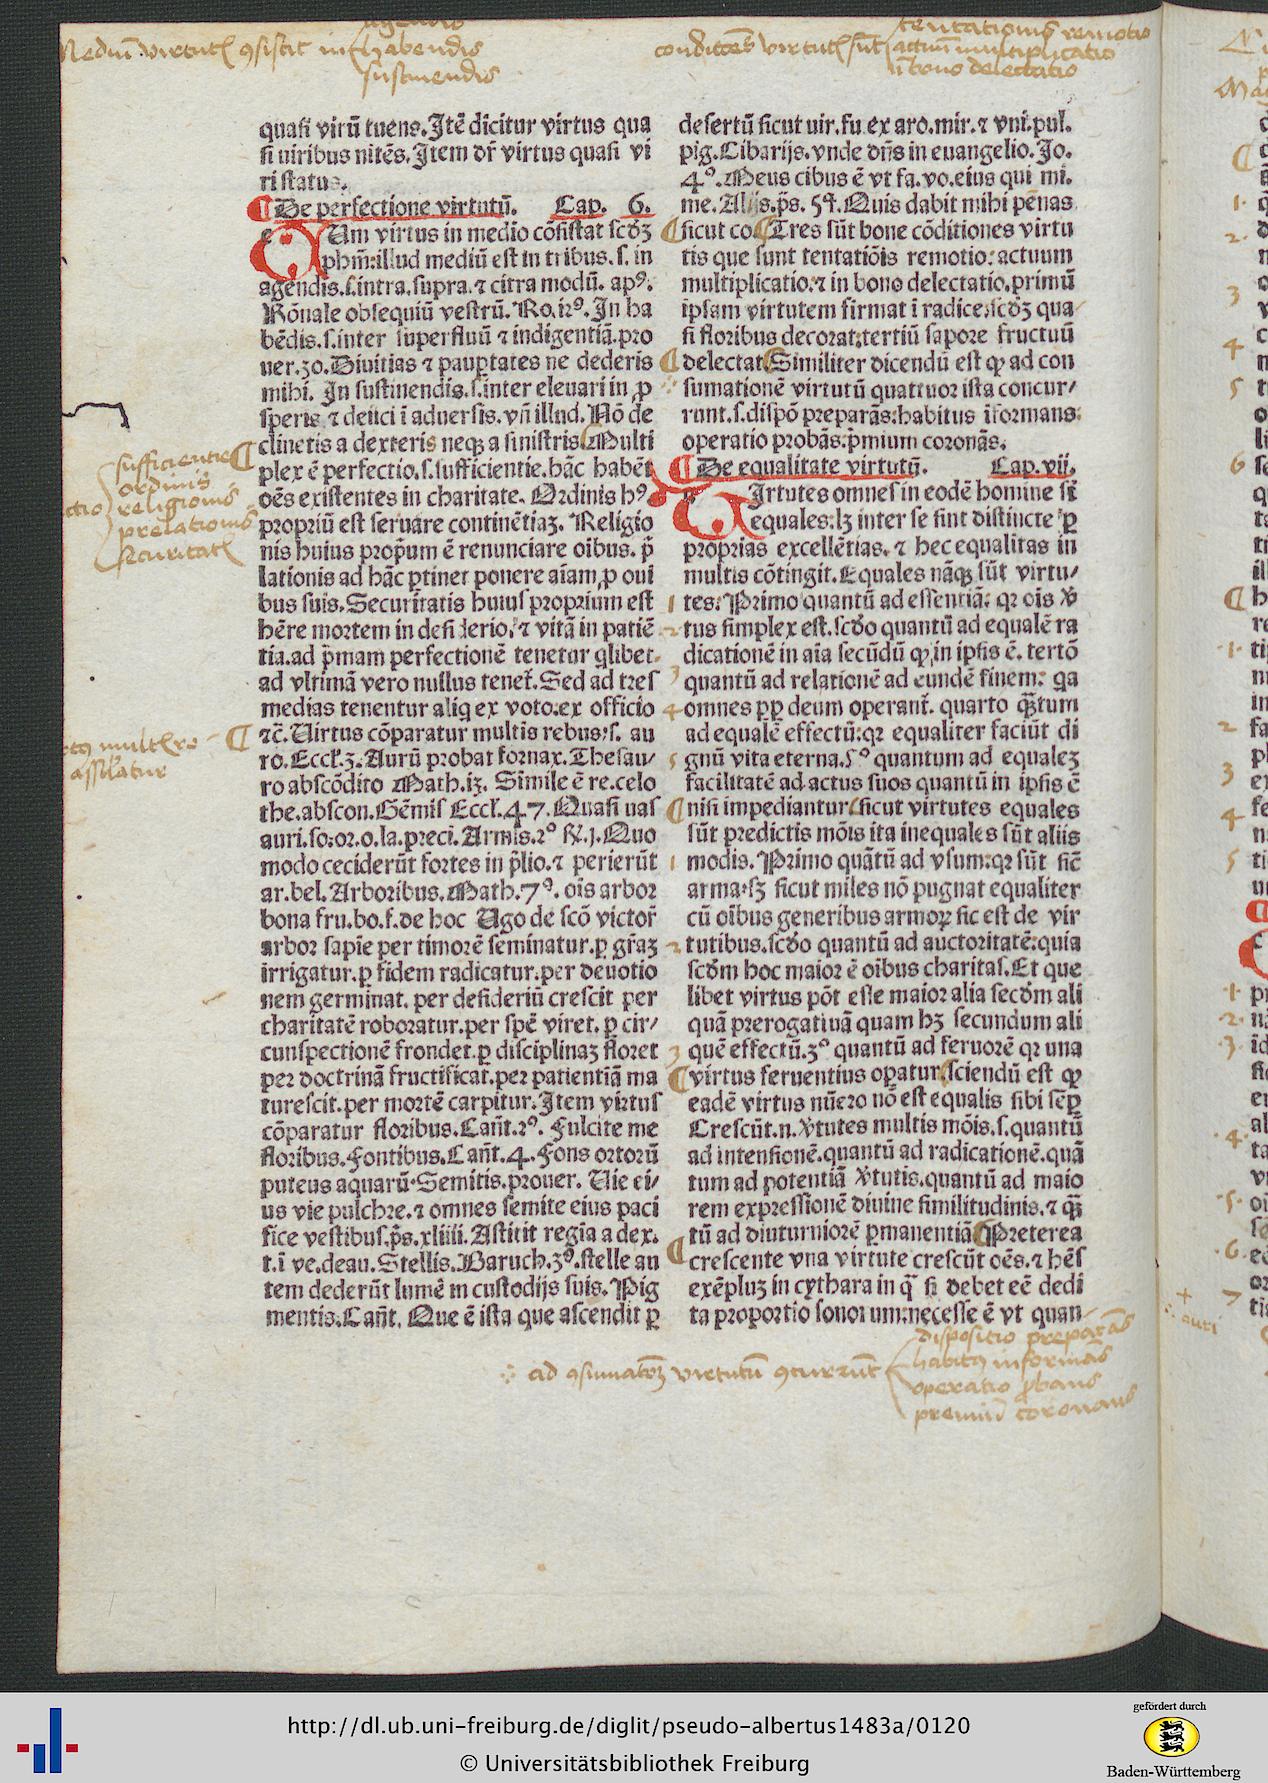 Mediū virtutꝭ ꝯsistit in
agendis
habendis
sustinendis
virtutꝭ sūt
tentationis remotio
actuum multiplicatio
in bono delectatio
quasi virū tuens. Itē dicitur virtus qua
si uiribus nitēs. Item dr̄ virtus quasi vi
ri status.
De perfectione virtutū. Cap. 6.
CUm virtus in medio cōsistat scd̓ꝫ
phm̄: illud mediū est in tribus. s. in
agendis. s. intra. supra. ⁊ citra modū. apꝰ.
Rōnale obsequiū vestrū. Ro. 12º. In ha
bēdis. s. inter superfluū ⁊ indigentiā. pro
uer. 30. Diuitias ⁊ paup̲tates ne dederis
mihi. In sustinendis. s. inter eleuari in ꝓ
speris ⁊ deiici ī aduersis. vn̄ illud. Nō de
clinetis a dexteris neqꝫ a sinistris. Multi
plex ē perfectio. s. sufficientie. hāc habēt
oēs existentes in charitate. Ordinis hꝰ
propriū est seruare continētiaꝫ. Religio
nis huius prop̄um ē renunciare oībus. p̄
lationis ad hāc ꝑtinet ponere aīam ꝓ oui
bus suis. Securitatis huius proprium est
hēre mortem in desiderio. ⁊ vitā in patiē
tia. ad p̄mam perfectionē tenetur qlibet.
ad vltimā vero nullus tenet̄. Sed ad tres
medias tenentur aliq ex voto. ex officio
⁊c̄. Uirtus cōparatur multis rebus: s. au
ro. Eccl̄. 3. Aurū probat fornax. Thesau/
ro abscōdito Math. iꝫ. Simile ē re. celo
the. abscon. Gēmis Eccl̄. 47. Quasi uas
auri. so: or. o. la. preci. Armis. 2º R̄. j. Quo
modo ceciderūt fortes in p̄lio. ⁊ perierūt
ar. bel. Arboribus. Math. 7º. oīs arbor
bona fru. bo. f. de hoc Ugo de scō victor̄
arbor sapīe per timorē seminatur. ꝑ gr̄aꝫ
irrigatur. ꝑ fidem radicatur. per deuotio
nem germinat. per desideriū crescit per
charitatē roboratur. per spē viret. ꝑ cir/
cunspectionē frondet. ꝑ disciplinaꝫ floret
per doctrinā fructificat. per patientiā ma
turescit. per mortē carpitur. Item virtus
cōparatur floribus. Cant̄. 2º. Fulcite me
floribus. Fontibus. Cant̄. 4. Fons ortorū
puteus aquarū. Semitis. prouer. Uie ei/
us vie pulchre. ⁊ omnes semite eius paci
fice vestibus. p̄s. xliiii. Astitit regīa a dex.
t. ī ve. deau. Stellis. Baruch. 3º. stelle au
tem dederūt lumē in custodijs suis. Pig
mentis. Cant̄. Que ē ista que ascendit ꝑ
desertū sicut uir. fu. ex aro. mir. ⁊ vni. pul.
pig. Cibarijs. vnde dn̄s in euangelio. Jo.
4º. Meus cibus ē vt fa. vo. eius qui mi.
me. Alijs. p̄s. 54. Quis dabit mihi pēnas
sicut co. Tres sūt bone cōditiones virtu
tis que sunt tentatiōis remotio: actuum
multiplicatio: ⁊ in bono delectatio. primū
ipsam virtutem firmat ī radice: scd̓ꝫ qua/
si floribus decorat: tertiū sapore fructuū
delectat. Similiter dicendū est ꝙ ad con
sumationē virtutū quattuor ista concur/
runt. s. dispō preparās: habitus īformans:
operatio probās: p̄mium coronās.
De equalitate virtutū. Cap. vii.
VIrtutes omnes in eodē homine sī
equales: lꝫ inter se sint distincte ꝑ
proprias excellētias. ⁊ hec equalitas in
multis cōtingit. Equales nāqꝫ sūt virtu/
tes: Primo quantū ad essentiā: qꝛ oīs v̓
tus simplex est. scd̓o quantū ad equalē ra
dicationē in aīa secūdū ꝙ in ipsis ē. tertō
quantū ad relationē ad eundē finem: qa
omnes ꝓp deum operant̄. quarto q̄tum
ad equalē effectū: qꝛ equaliter faciūt di
gnū vita eterna. 5º quantum ad equaleꝫ
facilitatē ad actus suos quantū in ipsis ē
nisi impediantur. sicut virtutes equales
sūt predictis mōis ita inequales sūt aliis
modis. Primo quātū ad vsum: qꝛ sūt sic̄
arma. sꝫ sicut miles nō pugnat equaliter
cū oībus generibus armoꝝ sic est de vir
tutibus. scd̓o quantū ad auctoritatē: quia
scd̓m hoc maior ē oībus charitas. Et que
libet virtus pōt esse maior alia secd̓m ali
quā prerogatiuā quam hꝫ secundum ali
quē effectū. 3º quantū ad feruorē qꝛ una
virtus feruentius oꝑatur. sciendū est ꝙ
eadē virtus nūero nō est equalis sibi sēꝑ
Crescūt. n. v̓tutes multis mōis. s. quantū
ad intensionē. quantū ad radicationē. quā
tum ad potentiā v̓tutis. quantū ad maio
rem expressionē diuine similitudinis. ⁊ q̄
tū ad diuturniorē ꝑmanentiā. Preterea
crescente vna virtute crescūt oēs. ⁊ hēs
exēpluꝫ in cythara in q̄ si debet eē dedi
ta proportio sonorum: necesse ē vt quan/
sufficientie
ordinis
religionis
prelationis
securitatꝭ
assilatur
1
2
3
4
5
1
2
3
ad ꝯsumatōꝫ virtutū ꝯcurrūt
dispositio preparās
habitꝰ informās
operatio ꝓbans
premiū coronans
http://dl.ub.uni-freiburg.de/diglit/pseudo-albertus1483a/0120
© Universitätsbibliothek Freiburg
gefördert durch
Baden-Württemberg